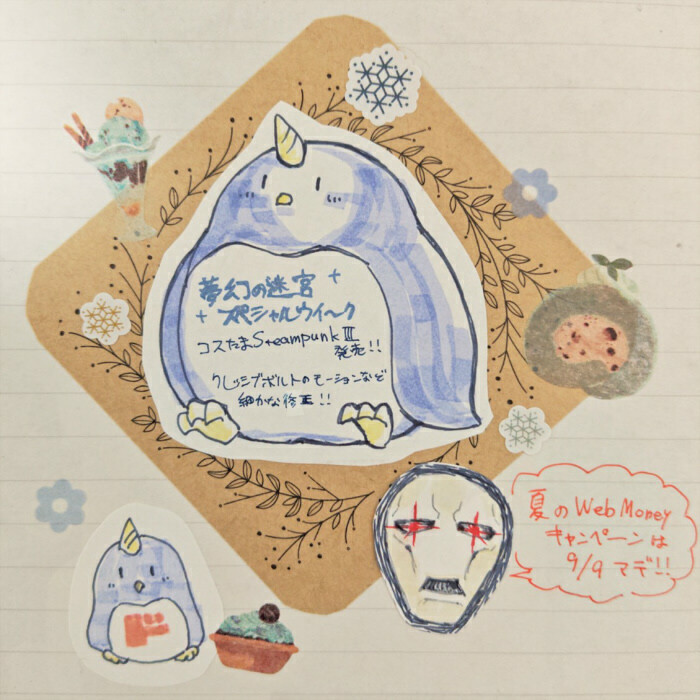 夢幻の迷宮
スペシャルウィ〜ク
コスたまSteampunkⅢ
発売!!
クレッシブボルトのモーションなど
細かな修正!!
夏のWebMoney
キャンペーンは
9/9マデ!!
ド